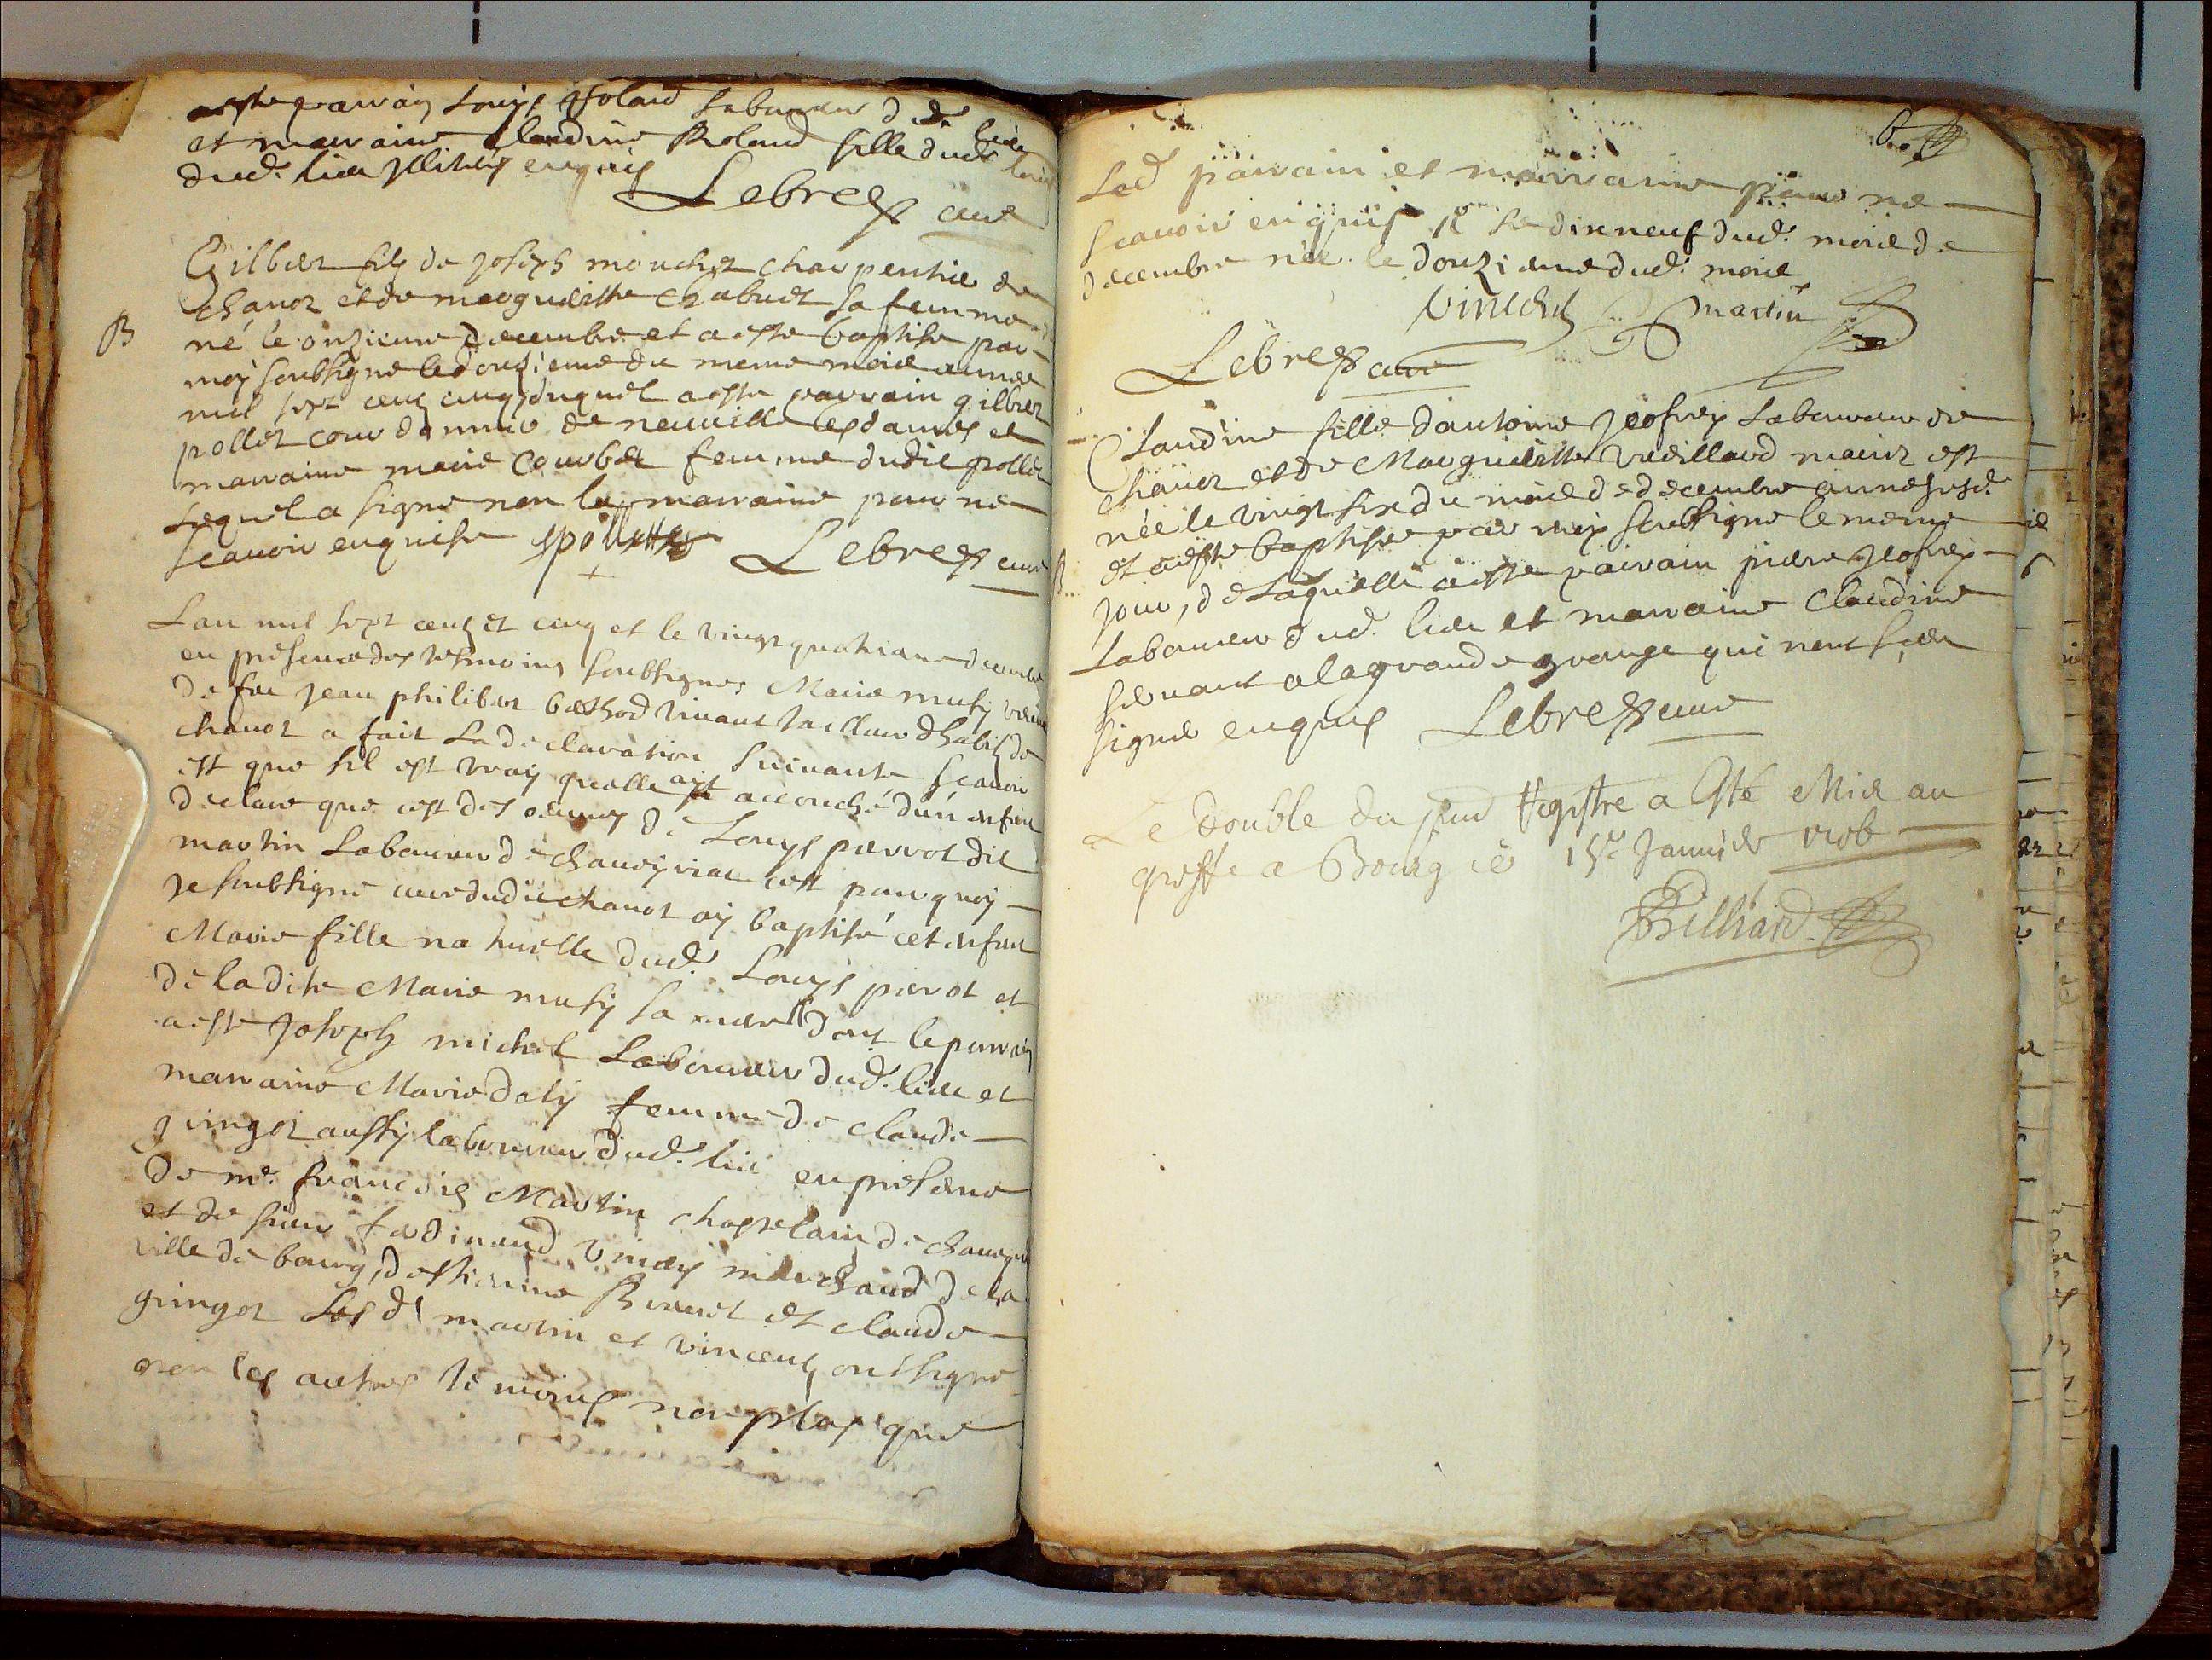 parrain Louys Roland laboureur dud. lieu
et marraine Claudine Roland fille dud. Louis
dud. lieu illiterés enquis
Lebrest curé
Gilbert fils de joseph mouchet charpentier de
chanoz et de margueritte chabuet sa femme
B
né le onzieme decembre et a esté baptisé par
moy soubsigne le douzieme du meme mois année
mil sept cens cinq, duquel a esté parrain gilbert
pollet cour donnier de neuville les dames et
marraine marie Courbet femme dudit pollet
Lequel a signé non la marraine pour ne
scavoir enquise pollet Lebrest curé
Lan mil sept cens et cinq et le vingt quatrieme decembre
en presence des tesmoins soubsignes Marie musy veuve
de feu jean philibert bethod vivant tailleur dhabits de
chanoz a fait La declaration suivante scavoir
est que sil est vray quelle ayt accouché dun enfant
declare que cest des oeuvres de Louys pierrot dit
martin Laboureur de chanoz cest pourquoy
je soubsigné curé dudit chanoz ay baptisé cet enfant
Marie fille naturelle dud. Louys pierrot et
de ladite Marie musy sa mere dont le parrain
a esté joseph michel Laboureur dud. lieu et
marraine Marie daly femme de claude
gringoz aussy laboureur dud. lieu en presence
de mr. francois Martin chapelain de
et de sieur ferdinand vincens marchand de la
ville de bourg, destienne Buvet et claude
gringoz Lesd. martin et vincens ont signé
non les autres témoins non plus que
6
Led. parrain et marraine pour ne
scavoir enquis le dixneuf dud. mois de
decembre née le douzieme dud. mois
Vincens martin
Lebrest curé
Claudine fille dantoine jeofrey Laboureur de
chanoz et de Margueritte vieillard mariez est
née le vingt six du mois de decembre année susd.
B
et a esté baptisee par moy soubsigné le meme
jour, de Laquelle a esté parrain pierre jeofrey
Laboureur dud. lieu et marraine Claudine
servante a la grande grange qui nont sceu
signer enquis Lebrest curé
Le double du pnt Registre a esté Mis au
greffe a Bourg ce 15e Janvier 1706
Billiard